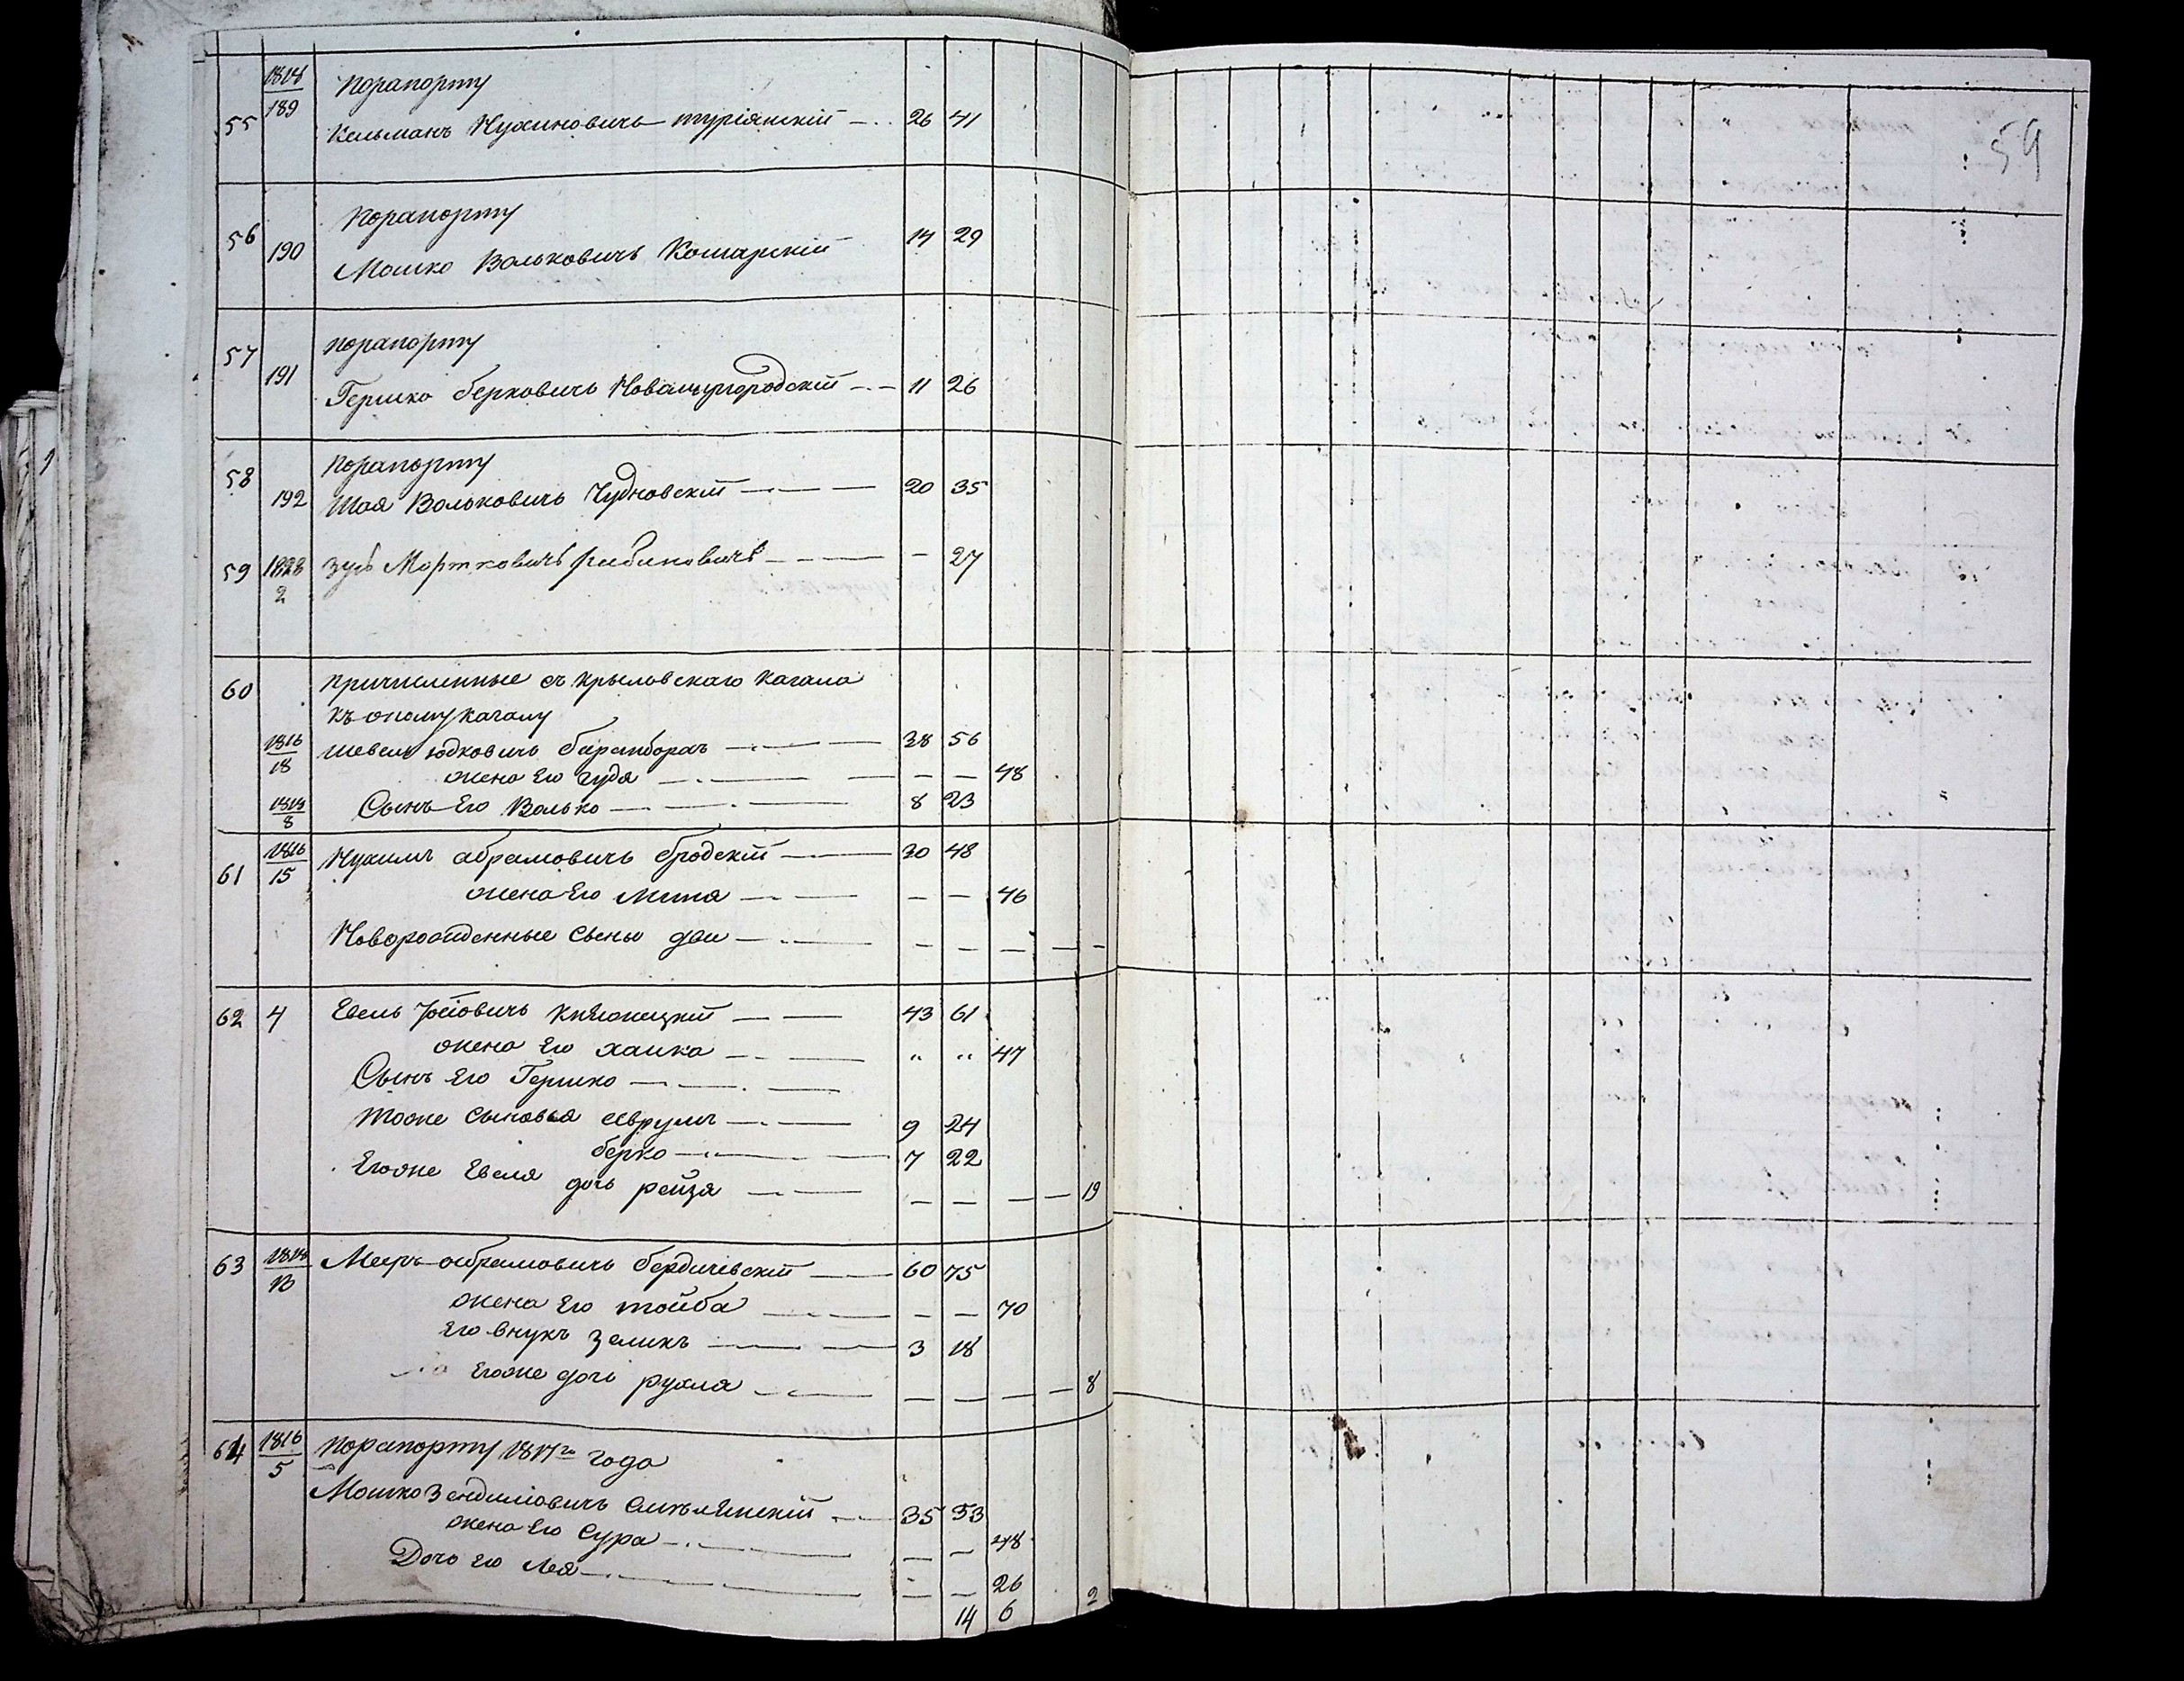 59
1818
Порапорту
55 189 Кельманъ Нухимовичь туріянскій 26 41
Порапорту
56 190 Мошко Вольковичь Комарскій 14 29
порапорту
57 191 Гершко берковичь Новомиргородскій 11 26
Порапорту
58 192 Шая Вольковичь Чудновскій 20 35
59 1828 2 Зусь Мортковичь рабиновичь — 27
60 причисленные съ крыловскаго кагала
къ оному кагалу
1816 18 шевель юдковичь 38 56
жена Его худя — — 48
1818 8 Сынъ Его Волько 8 23
61 1816 15 Нухимъ абрамовичь бродскій 30 48
жена Его — — 46
Новорожденные Сыны два — — — — —
62 4 Евель Іосіовичь Княжицкій 43 61
жена Его хаика " " 47
Сынъ Его Гершко
тоже Сыновья аврумъ 9 24
берко 7 22
Егоже Евеля дочь рейзя — — — — 19
63 1818 13 Меиръ абрамовичь бердичевскій 60 75
жена Его тойба — — 70
Его внукъ Зеликъ 3 18
Егоже дочь рухля — — — — 8
64 1816 5 порапорту 1817го года
Мошко Зендиліовичь 35 53
жена Его Сура — — 48
Дочь Его Лея — — 26
14 6 2